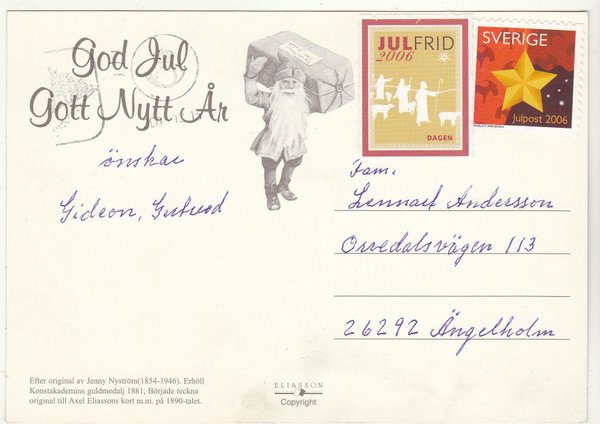 God Jul
Gott Nytt År
önskar
Gideon, Gertrud
JULFRID
2006
DAGEN
SVERIGE
Julpost 2006
Fam.
Lennart Andersson
Orredalsvägen 113
26292 Ängelholm
Efter original av Jenny Nyström(1854-1946). Erhöll
Konstakademins guldmedalj 1881, Började teckna
original till Axel Eliassons kort m.m. på 1890-talet.
ELIASSON
Copyright